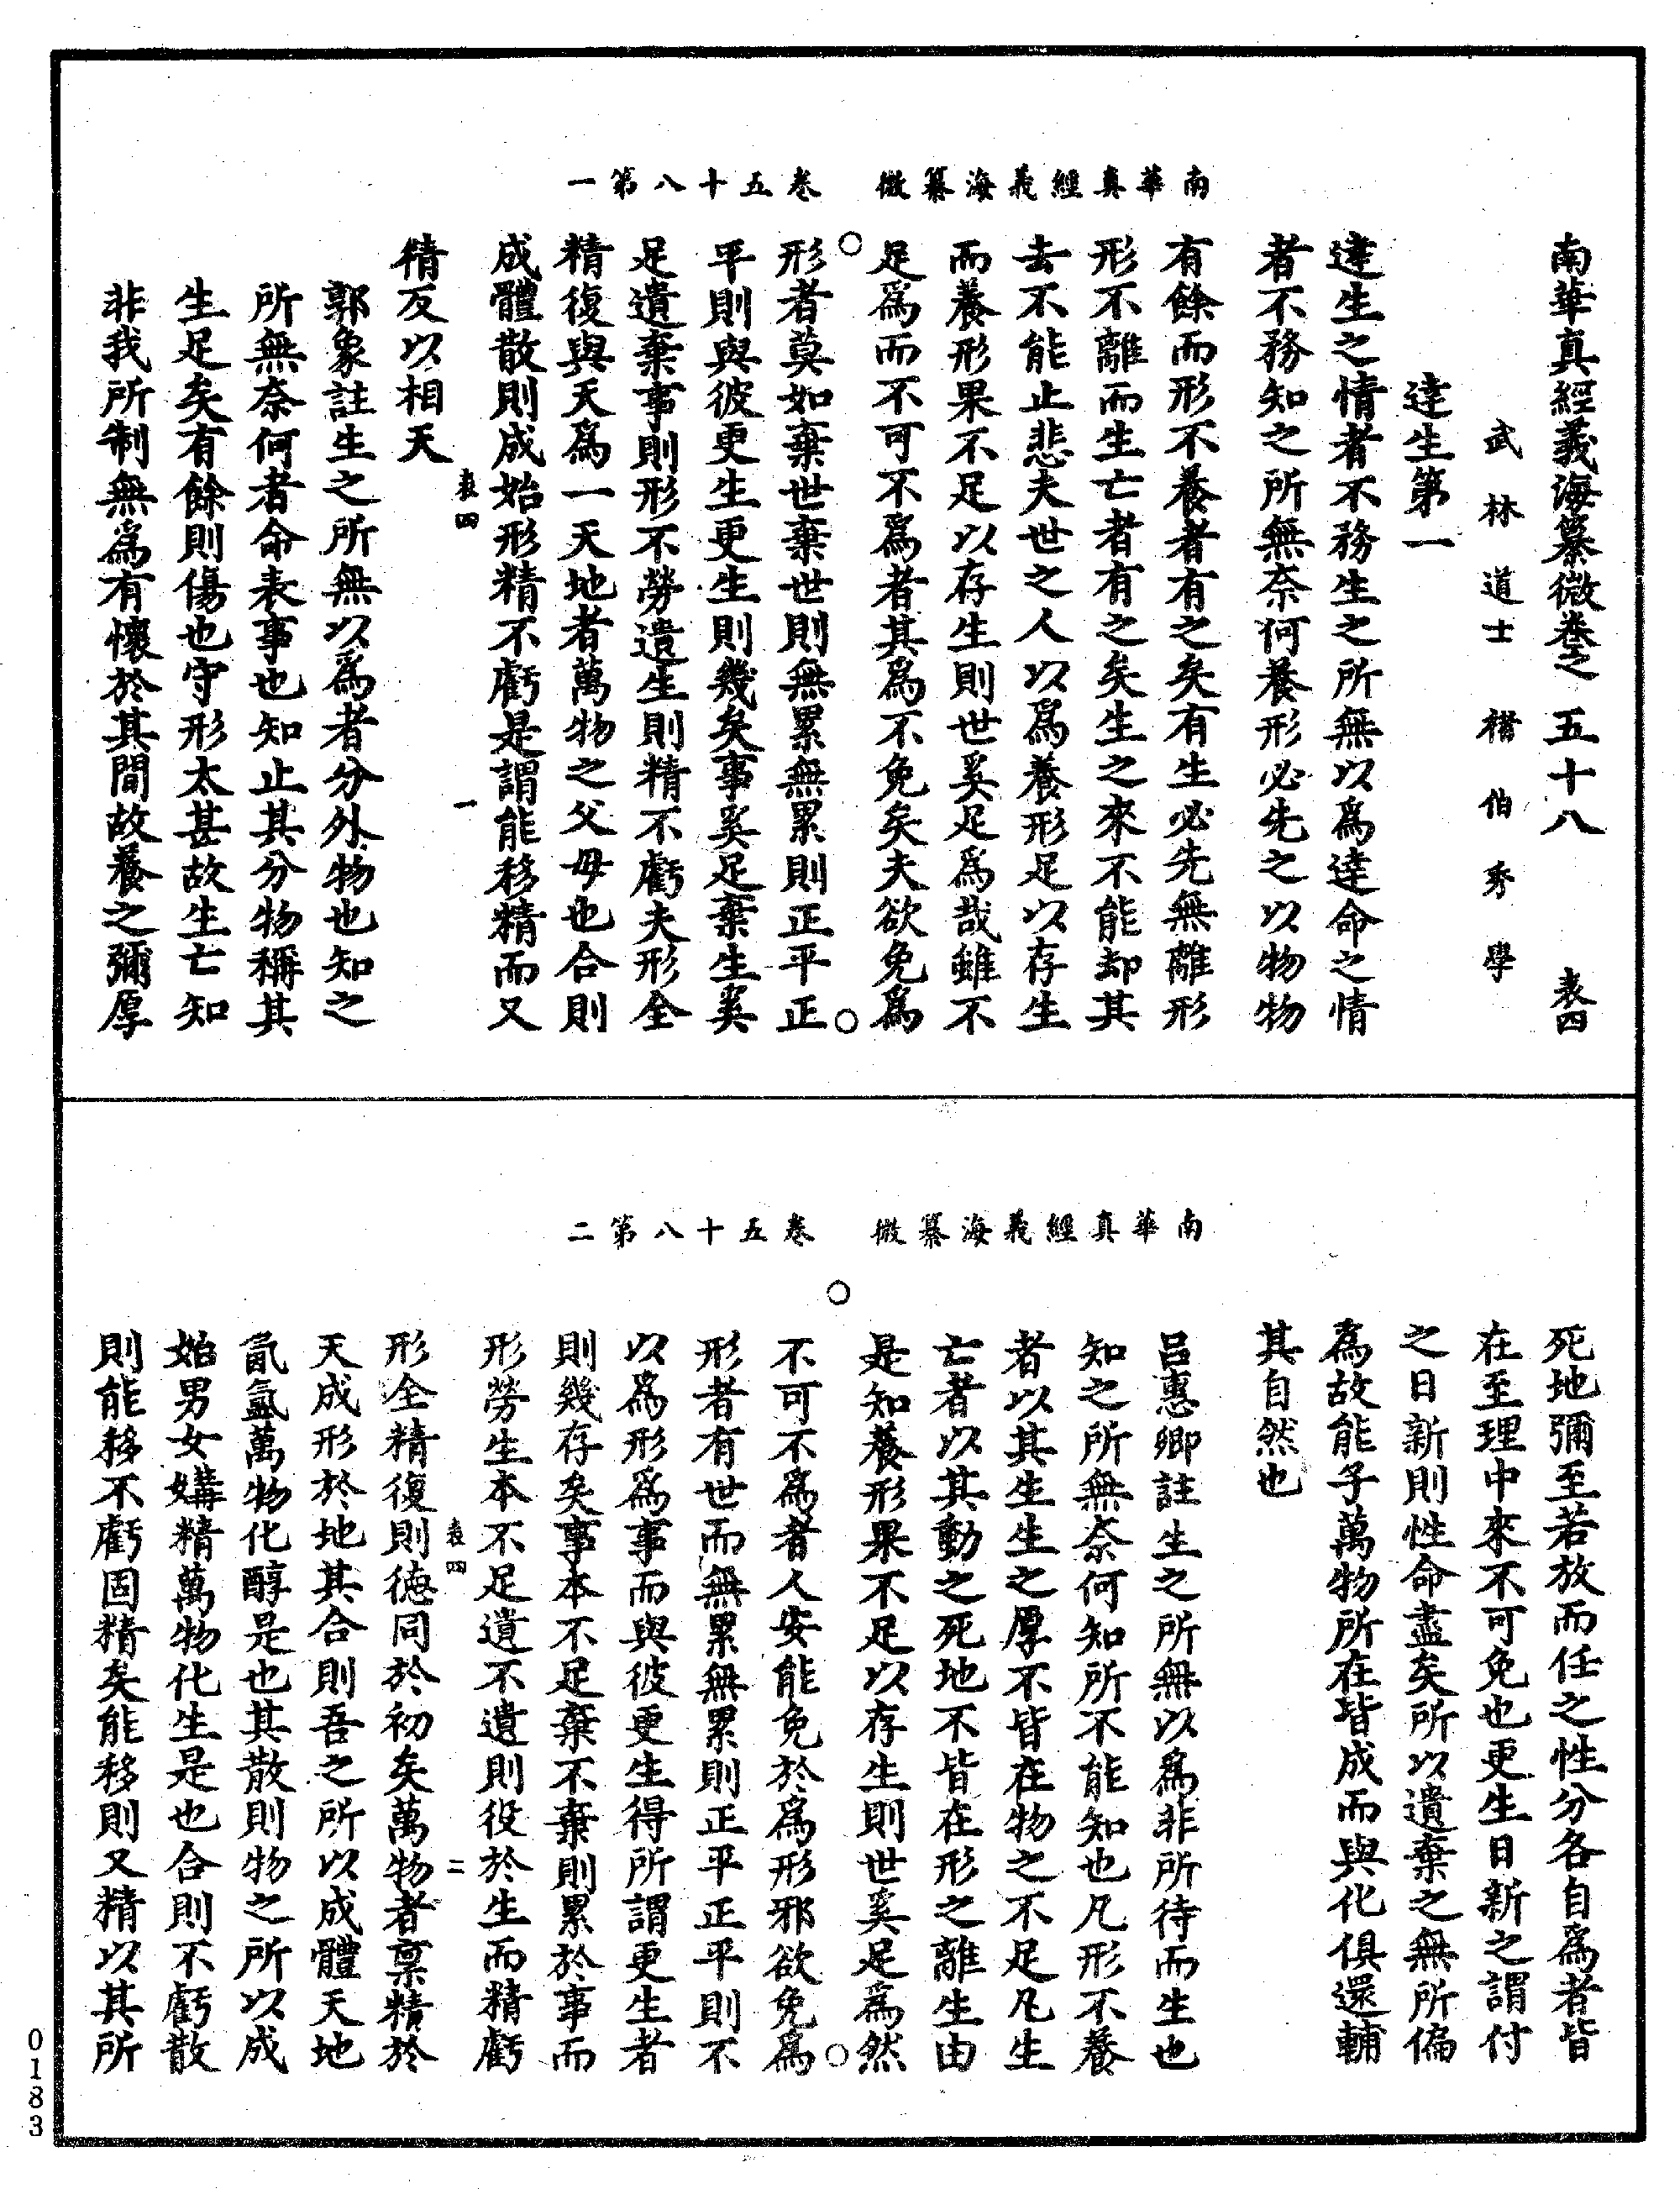 南華真經義海纂微　卷五十八第一
南華真經義海纂微卷之五十八　表四
武林道士褚伯秀學
達生第一
達生之情者不務生之所無以為達命之情
者不務知之所無奈何養形必先之以物物
有餘而形不養者有之矣有生必先無離形
形不離而生亡者有之矣生之來不能却其
去不能止悲夫世之人以為養形足以存生
而養形果不足以存生則世奚足為哉雖不
足為而不可不為者其為不免矣夫欲免為
形者莫如棄世棄世則無累無累則正平正
平則與彼更生更生則幾矣事奚足棄生奚
足遺棄事則形不勞遺生則精不虧夫形全
精復與天為一天地者萬物之父母也合則
成體散則成始形精不虧是謂能移精而又
表四　一
精反以相天
郭象註生之所無以為者分外物也知之
所無奈何者命表事也知止其分物稱其
生足矣有餘則傷也守形太甚故生亡知
非我所制無為有懷於其間故養之彌厚
南華真經義海纂微　卷五十八第二
死地彌至若放而任之性分各自為者皆
在至理中來不可免也更生日新之謂付
之日新則性命盡矣所以遺棄之無所偏
為故能子萬物所在皆成而與化俱還輔
其自然也
呂惠卿註生之所無以為非所待而生也
知之所無奈何知所不能知也凡形不養
者以其生生之厚不皆在物之不足凡生
亡者以其動之死地不皆在形之離生由
是知養形果不足以存生則世奚足為然
不可不為者人安能免於為形邪欲免為
形者有世而無累無累則正平正平則不
以為形為事而與彼更生得所謂更生者
則幾存矣事本不足棄不棄則累於事而
形勞生本不足遺不遺則役於生而精虧
表四　二
形全精復則德同於初矣萬物者禀精於
天成形於地其合則吾之所以成體天地
氤氳萬物化醇是也其散則物之所以成
始男女媾精萬物化生是也合則不虧散
則能移不虧固精矣能移則又精以其所
0183